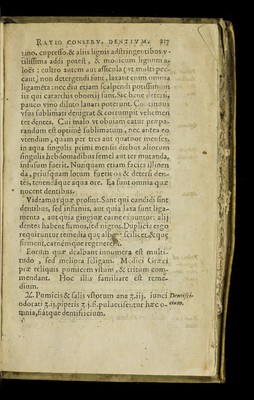 RATIO CONSERV. DENTIVM. 217
tino, cupresso, & aliis lignis adstringentibus v-
tilissima addi potest, & modicum lignum a-
loës: cultro autem aut assicula (vt multi pec-
cant) non detergendi sunt, laxant enim omnia
ligamẽta: nec diu etiam scalpendi potissimùm
iis qui catarrhis obnoxij sunt. Sic bene detersi,
pauco vino diluto lauari poterunt. Continuus
vsus sublimati denigrat & corrumpit vehemen
ter dentes. Cui malo vt obuiam eatur præpa-
randum est optimè sublimatum, nec antea eo
vtendum, quàm per tres aut quatuor menses,
in aqua singulis primi mensis diebus aliorum
singulis hebdomadibus semel aut ter mutanda,
infusum fuerit. Nunquam etiam fucis illinen
da, priusquam lotum fuerit os & detersi den-
tes, tenendáque aqua ore. Ea sunt omnia quæ
nocent dentibus.
Videamus quæ prosint. Sunt qui candidi sint
dentibus, sed infirmis, aut quia laxa sunt liga-
menta, aut quia gingiuæ carne exuuntur: alij
dentes habent firmos, sed nigros. Duplicia ergo
requiruntur remedia quæ albent scilicet, & quæ
firment, carnémque regenerent.
Eorum quæ dealbant innumera est multi-
tudo, sed meliora seligam. Medici Græci
præ reliquis pumicem vstum, & tritum com-
mendant. Hoc illis familiare est reme-
dium.
Pumicis & salis vstorum ana ʒ.iij. iunci
odorati ʒ.ij. piperis ʒ.j.ß. puluerisentur hæc o-
mnia, fiátque dentifricium.